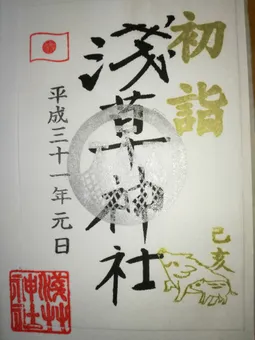 初詣
浅草神社
平成三十一年元日
己亥
浅草神社